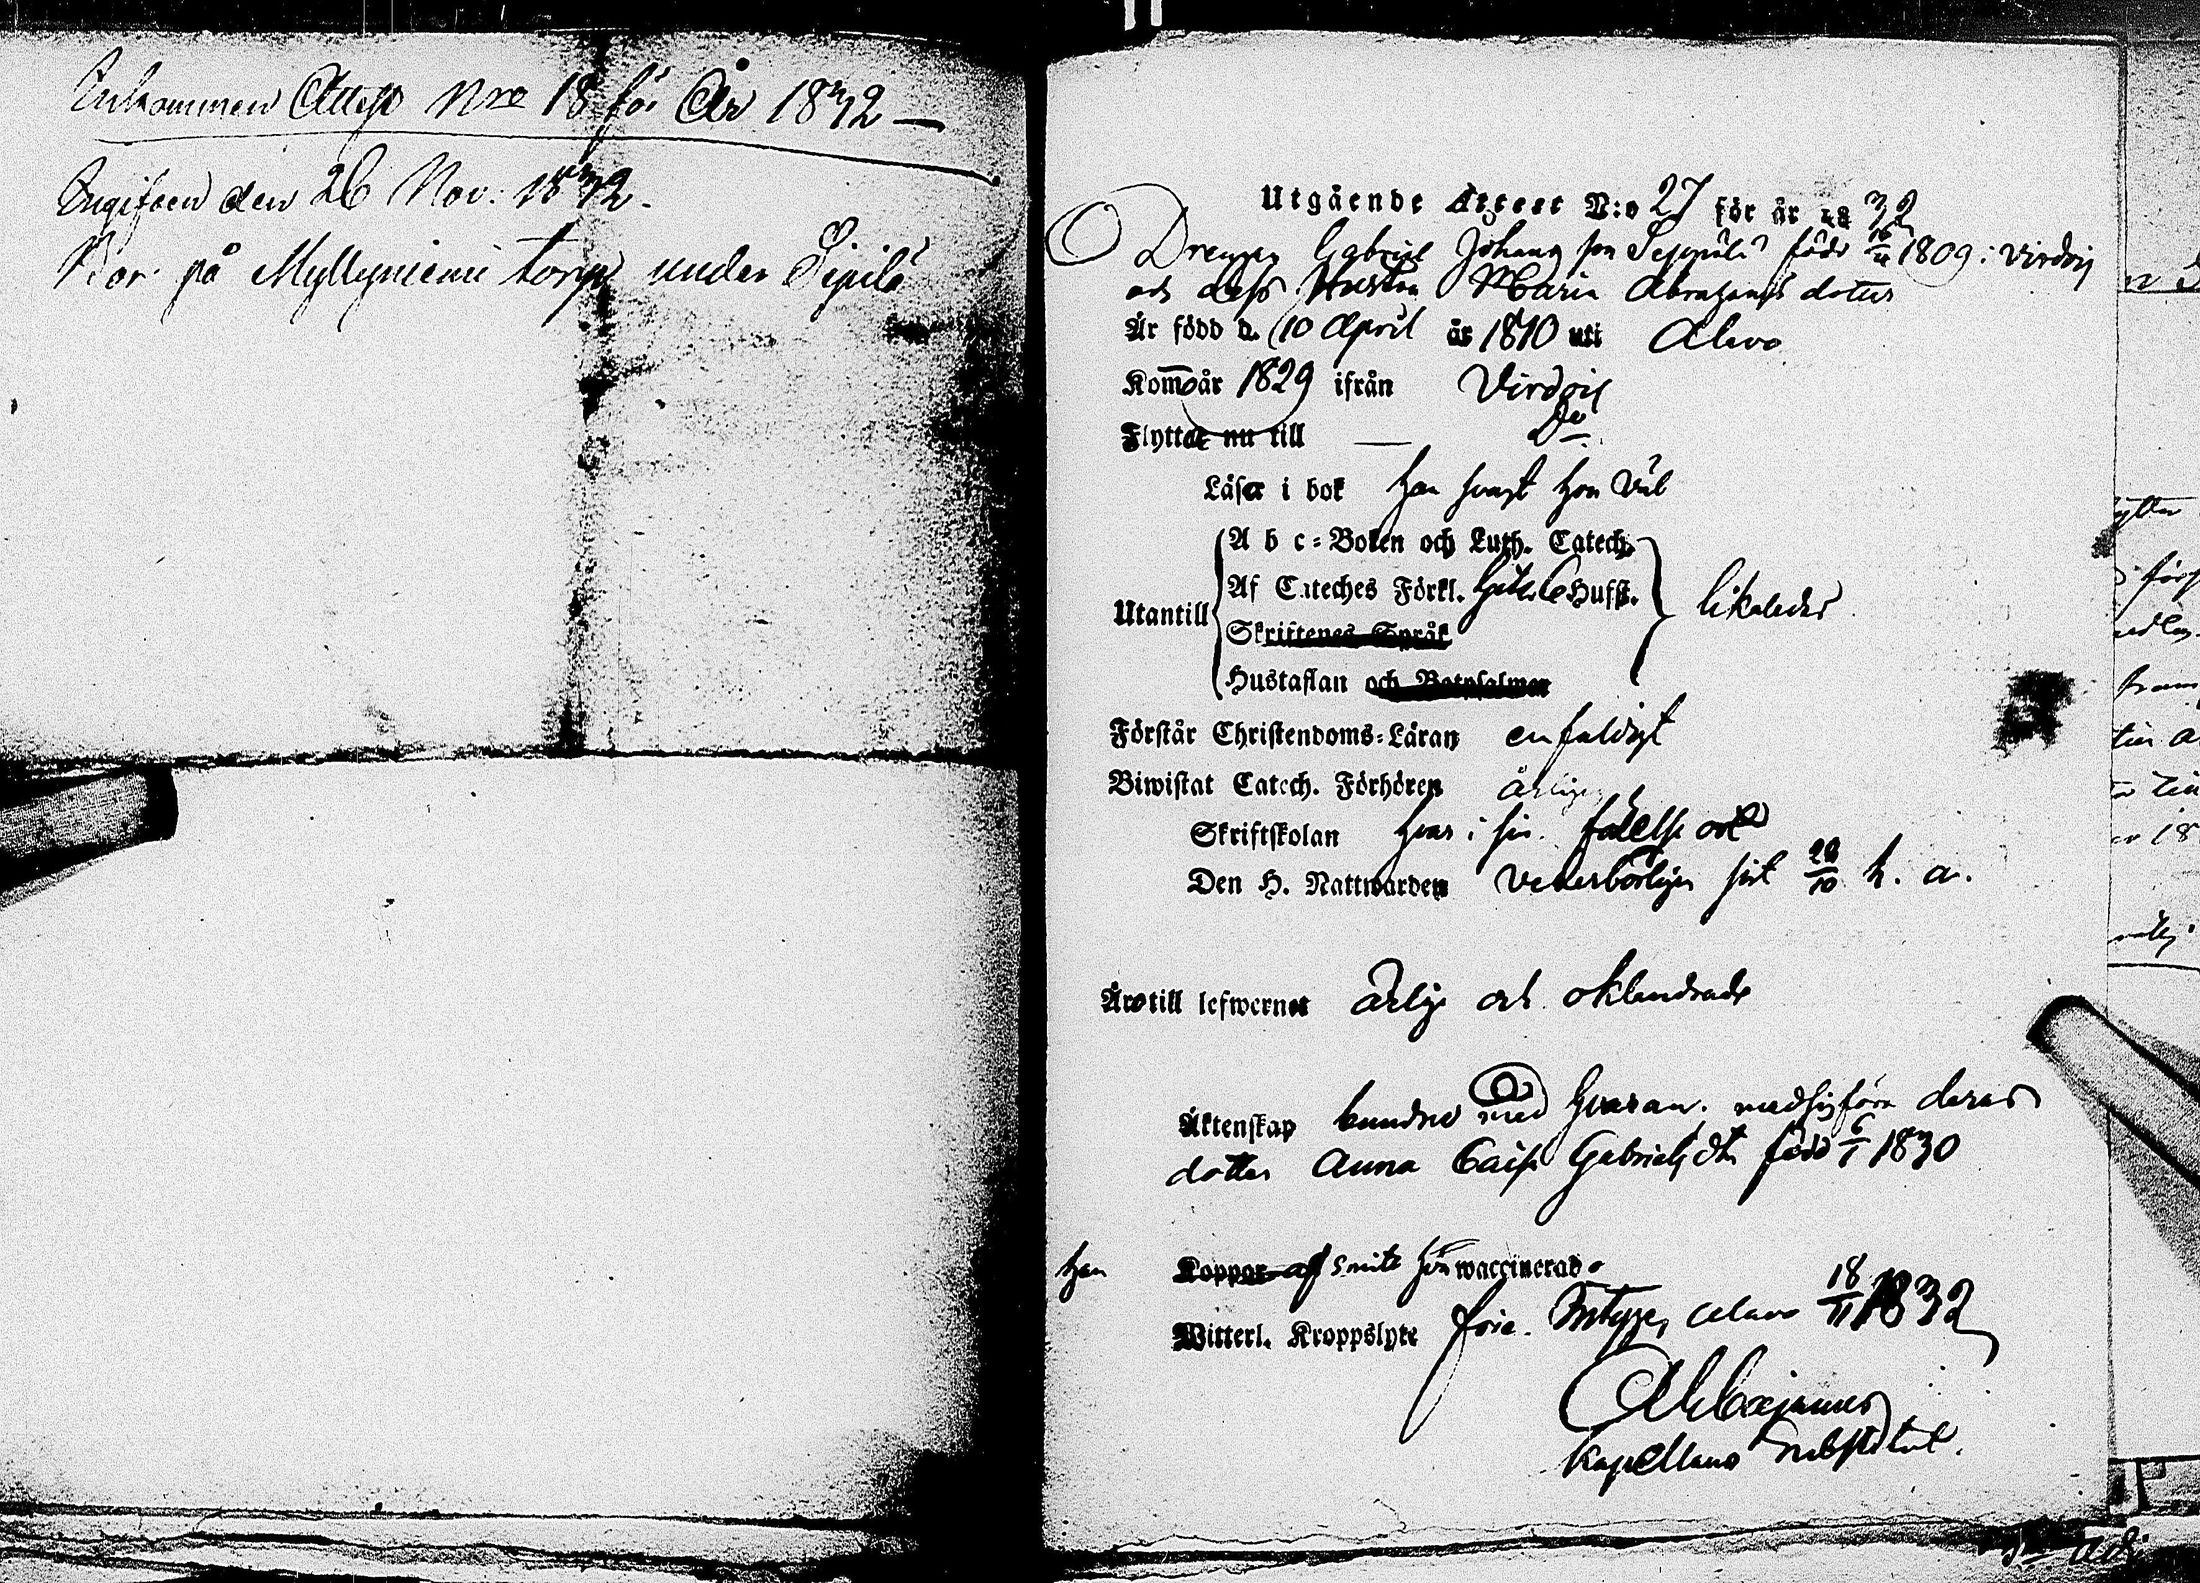 Inkommen Attest Nro 18 för År 1832 —
Ingifven den 26 Nov. 1832.
Bor på Myllyniemi torp under Sipilä
Utgående Attest N:o 27 för år 1832
Drengen Gabriel Johans son Seppälä född 1809 i Virdois
och dess Hustru Maria Abrahams dotter
Är född d. 10 April år 1810 uti Alavo
Kom år 1829 ifrån Virdois
Flytta nu till — Do
Läsa i bok han svagt hon väl
A b c-Boken och Luth. Catech.
Af Cateches Förkl. Hufst.
Utantill likaledes
Skriftenes Språk
Hustaflan och Botpsalmer
Förstår Christendoms-Läran enfaldigt
Biwistat Catech. Förhören årligen
Skriftskolan hvar i sin födelse ort
Den H. Nattwarden vederbörligen sist 28/10 h. a.
Äro till lefwernet ärlige och oklandrade
Äktenskap bundne med hvaran. medhafföra deras
dotter Anna Caisa Gabriels dr född 6/1 1830
han Koppor af smitt hon waccinerad
Witterl. Kroppslyte fria. Alavo 18/11 1832
Kapellans substitut.